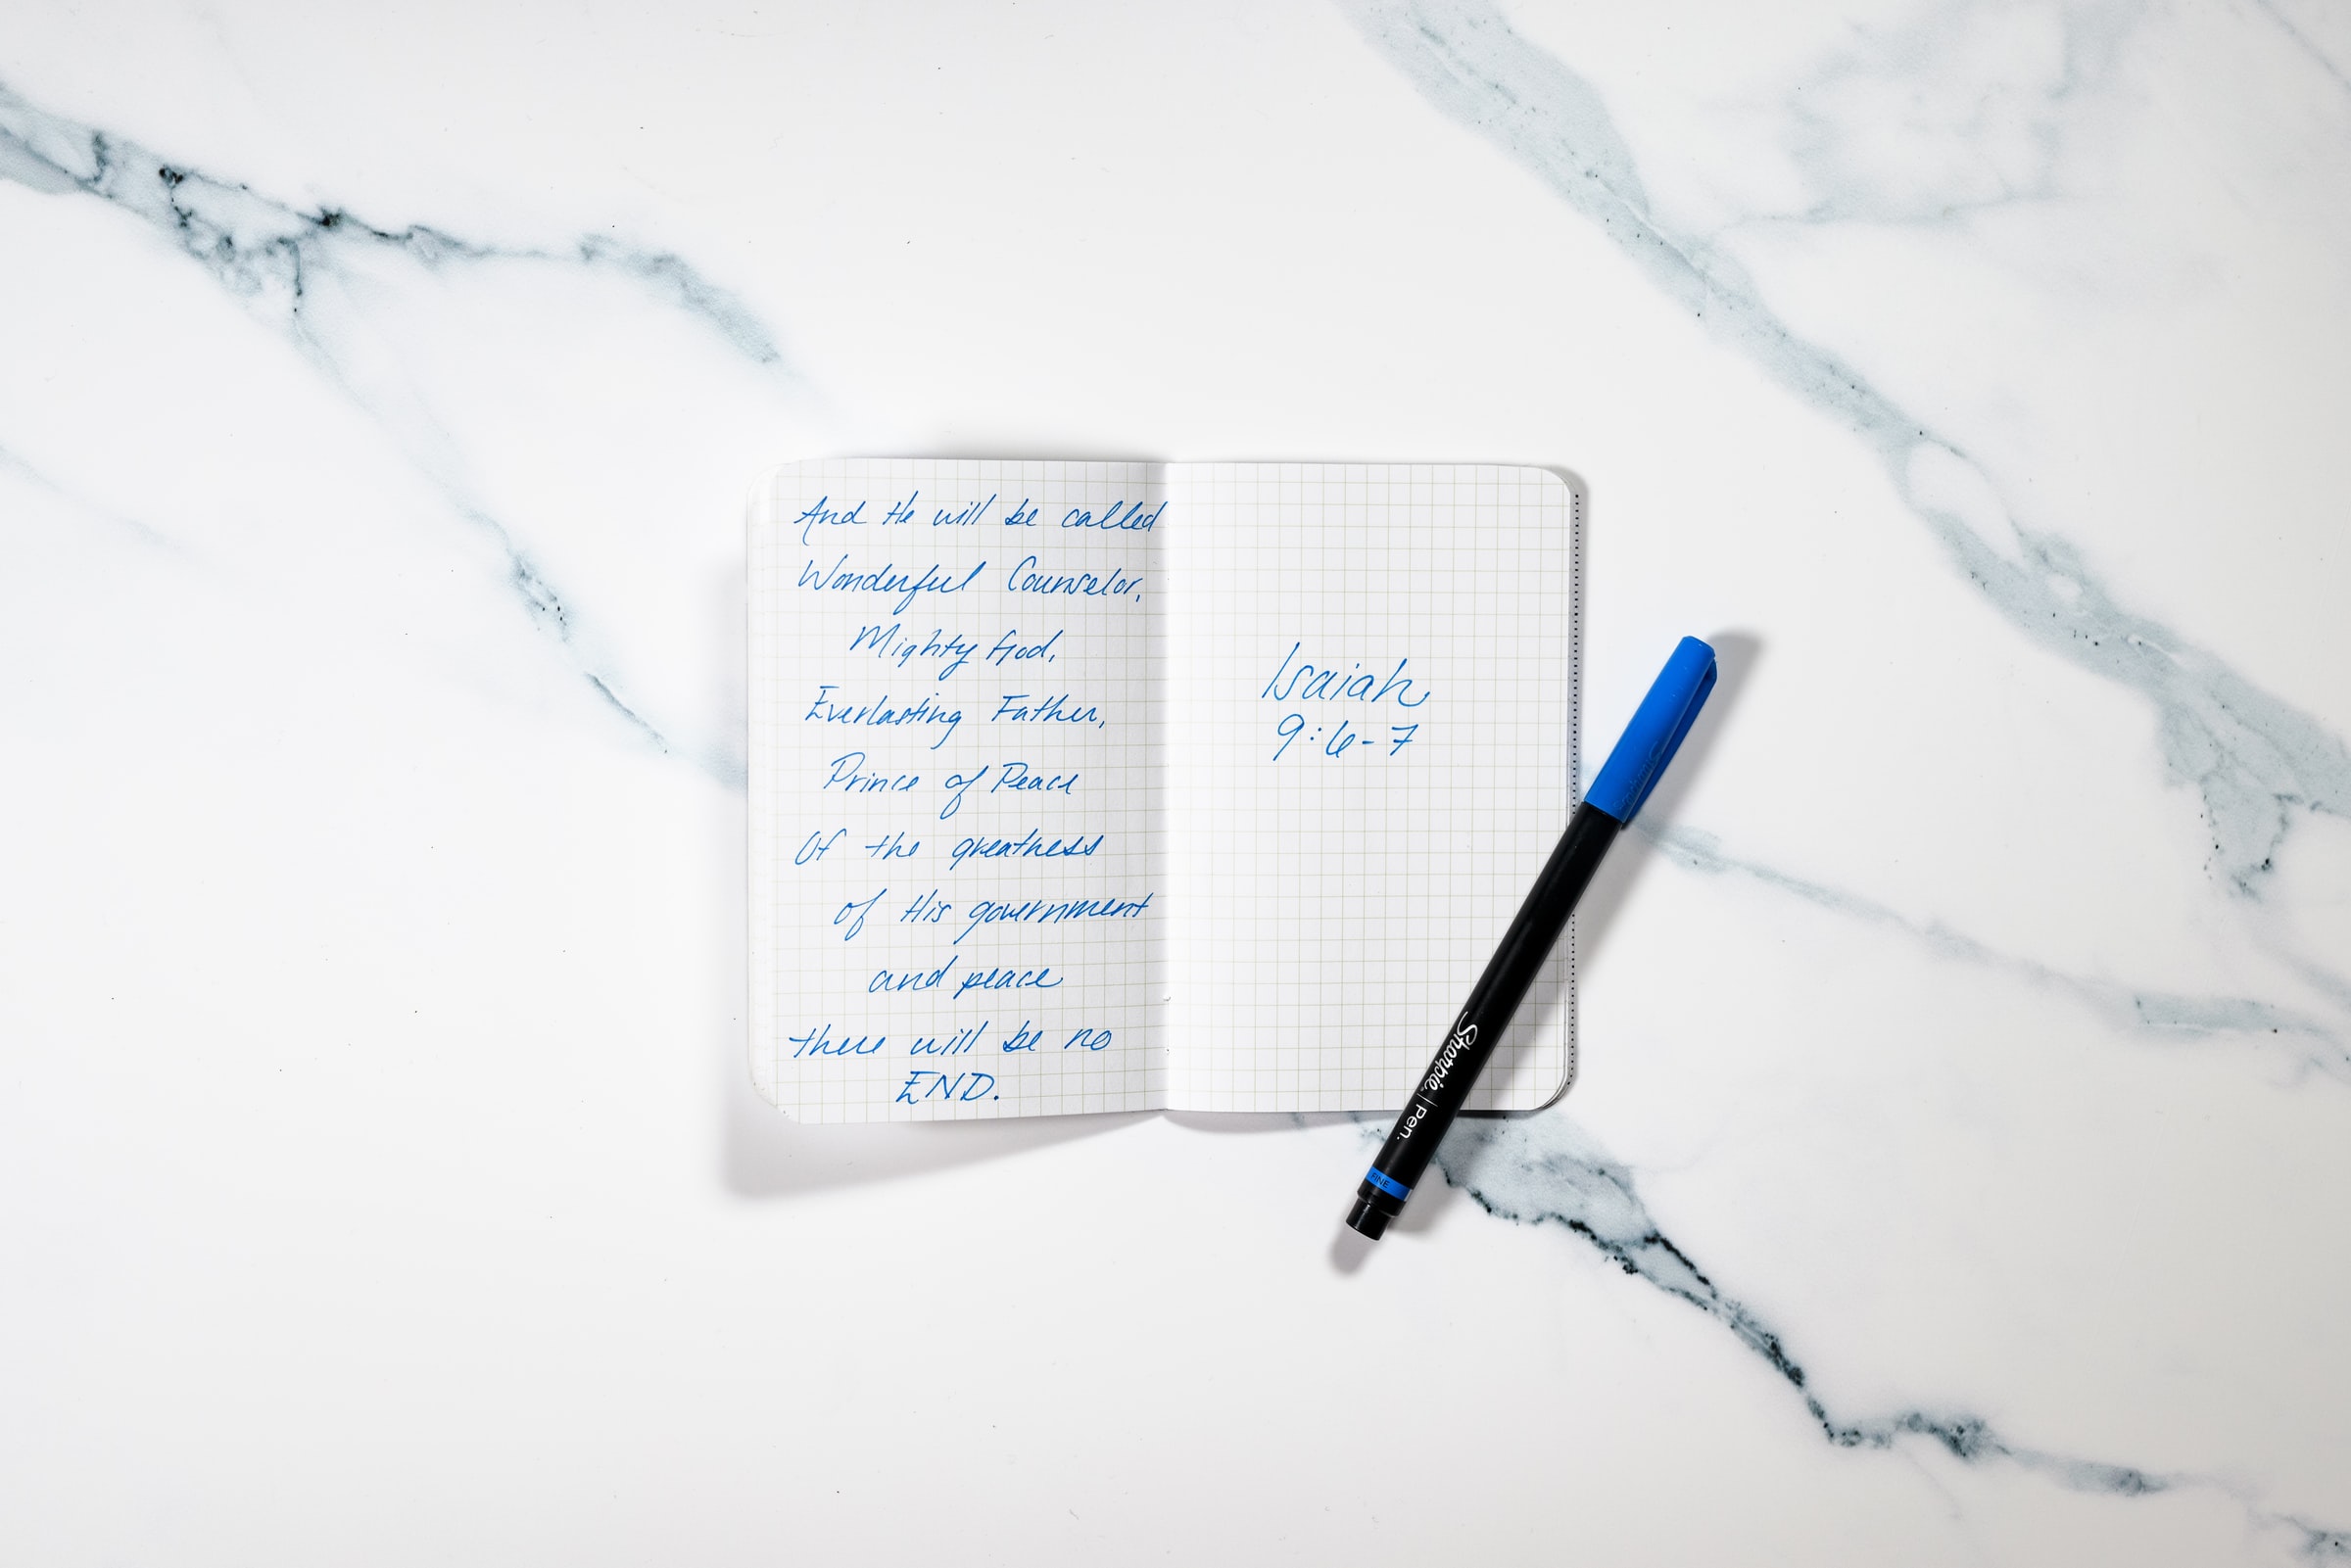 And He will be called
Wonderful Counselor,
Mighty God,
Everlasting Father,
Prince of Peace
Of the greatness
of His government
and peace
there will be no
END.
Isaiah
9:6-7
Sharpie
Sharpie. | Pen.
FINE